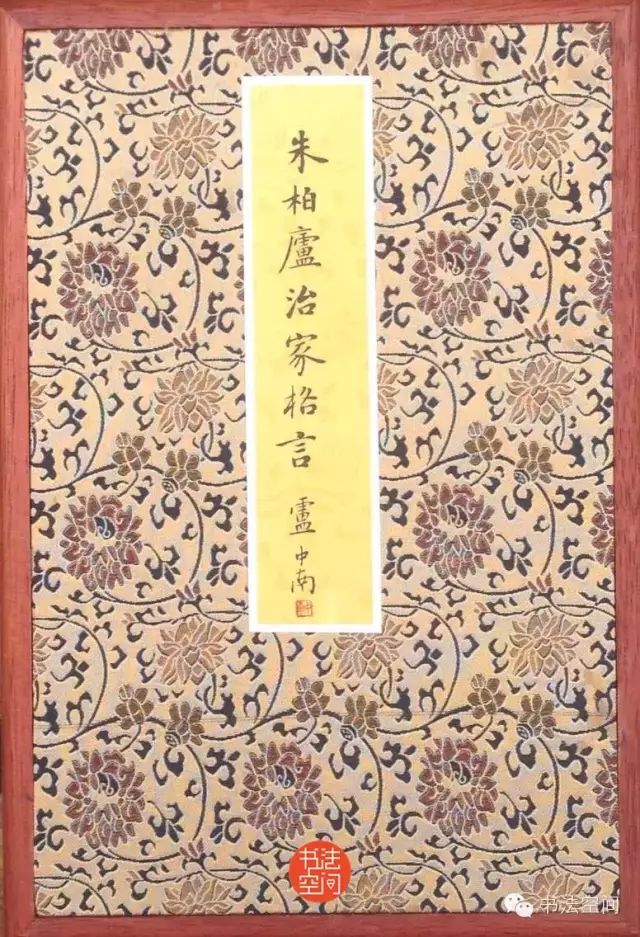 朱柏廬治家格言
盧中南
书法
空间
书法空间